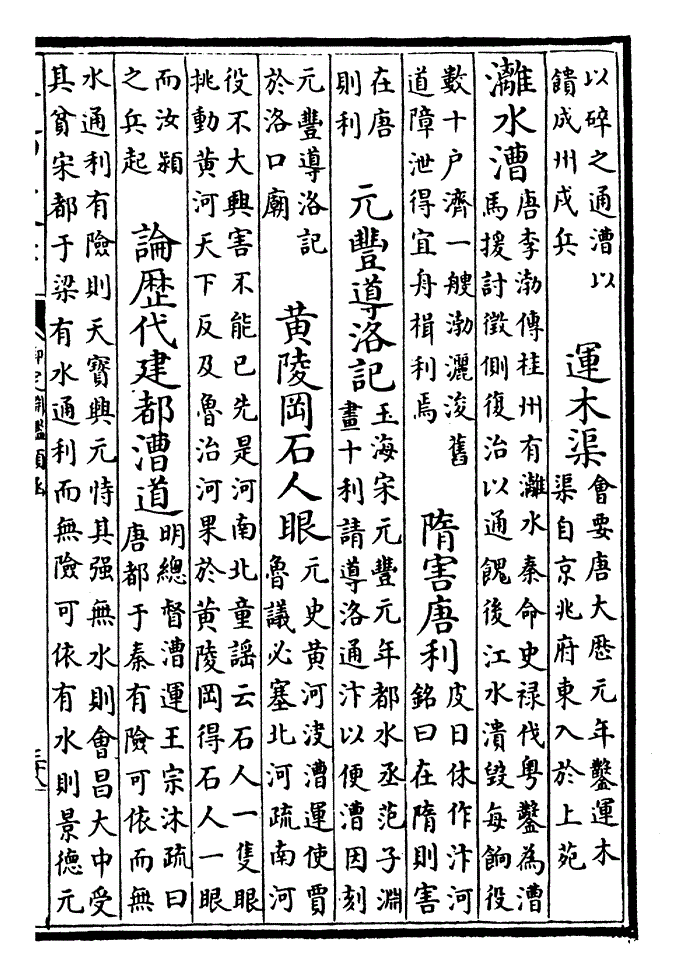 以碎之通漕以
饋成州戍兵
運木渠
會要唐大厯元年鑿運木
渠自京兆府東入於上苑
灕水漕
唐李渤傳桂州有灕水秦命史禄伐粤鑿為漕
馬援討徵側復治以通餽後江水潰毀每餉役
數十户濟一艘渤灑浚舊
道障泄得宜舟楫利焉
隋害唐利
皮日休作汴河
銘曰在隋則害
在唐
則利
元豐導洛記
玉海宋元豐元年都水丞范子淵
畫十利請導洛通汴以便漕因刻
元豐導洛記
於洛口廟
黄陵岡石人眼
元史黄河決漕運使賈
魯議必塞北河疏南河
役不大興害不能已先是河南北童謡云石人一隻眼
挑動黄河天下反及魯治河果於黄陵岡得石人一眼
而汝潁
之兵起
論歴代建都漕道
明總督漕運王宗沐疏曰
唐都于秦有險可依而無
水通利有險則天寶興元恃其强無水則會昌大中受
其貧宋都于梁有水通利而無險可依有水則景德元
御定淵鑑類函